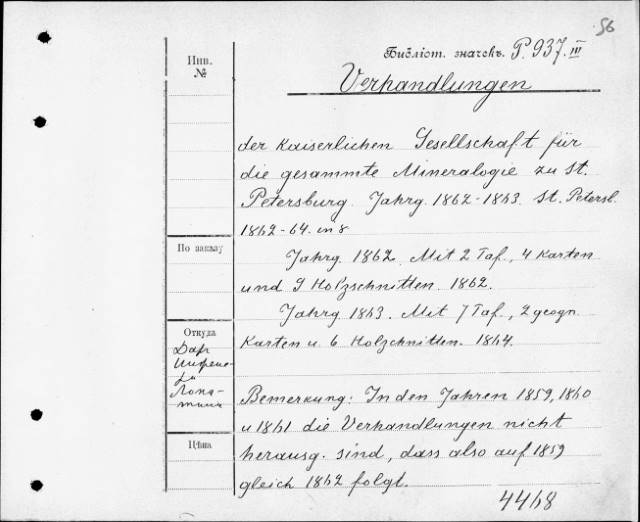 56
Инв.
№
Библіот. значекъ. P. 937. III
Verhandlungen
der Kaiserlichen Gesellschaft für
die gesammte Mineralogie zu St.
Petersburg. Jahrg. 1862-1863. St. Petersb.
1862-64. in 8
По заказу
Jahrg. 1862. Mit 2 Taf., 4 Karten
und 9 Holzschnitten. 1862.
Jahrg. 1863. Mit 7 Taf., 2 geogn.
Karten u. 6 Holzchnitten. 1864.
Откуда
Даръ
Лопа-
тина
Bemerkung: In den Jahren 1859, 1860
u 1861 die Verhandlungen nicht
herausg. sind, dass also auf 1859
gleich 1862 folgt.
Цѣна
4468